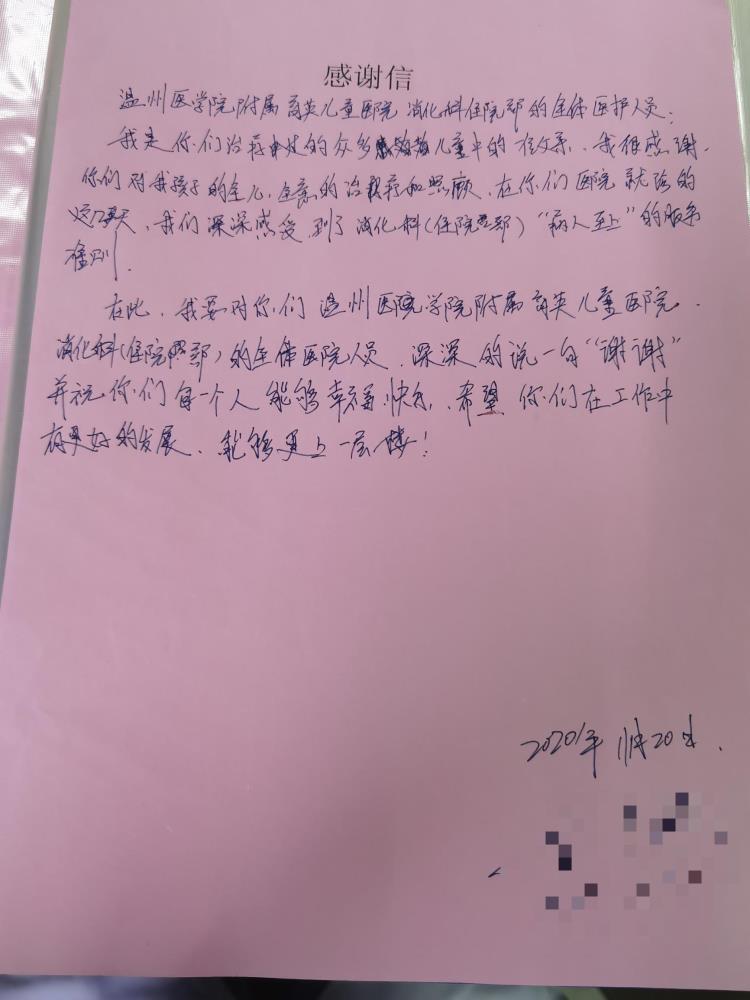 感谢信
温州医学院附属育英儿童医院 消化科住院部的全体医护人员:
我是你们治疗的众多儿童中的一位父亲、我很感谢
你们对我孩子的全心、全意的治疗和照顾、在你们医院就诊的
这几天、我们深深感受到了消化科(住院部)“病人至上”的服务
准则.
在此、我要对你们温州医院学院附属育英儿童医院、
消化科(住院部)的全体医院人员、深深的说一句“谢谢”
并祝你们每一个人能够幸福、快乐、希望你们在工作中
有更好的发展、能够更上一层楼!
2020年11月20日.